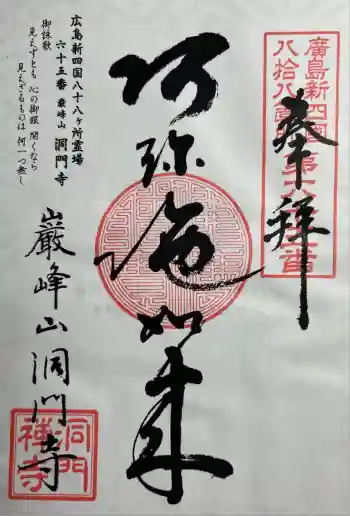 廣島新四国
八拾八ヶ所第六十五番
奉拝
阿弥陀如来
広島新四国八十八ヶ所霊場
六十五番 巌峰山 洞門寺
御詠歌
見えずとも 心の御眼 開くなら
見えざるものは 何一つ無し
巌峰山洞門寺
洞門
禅寺